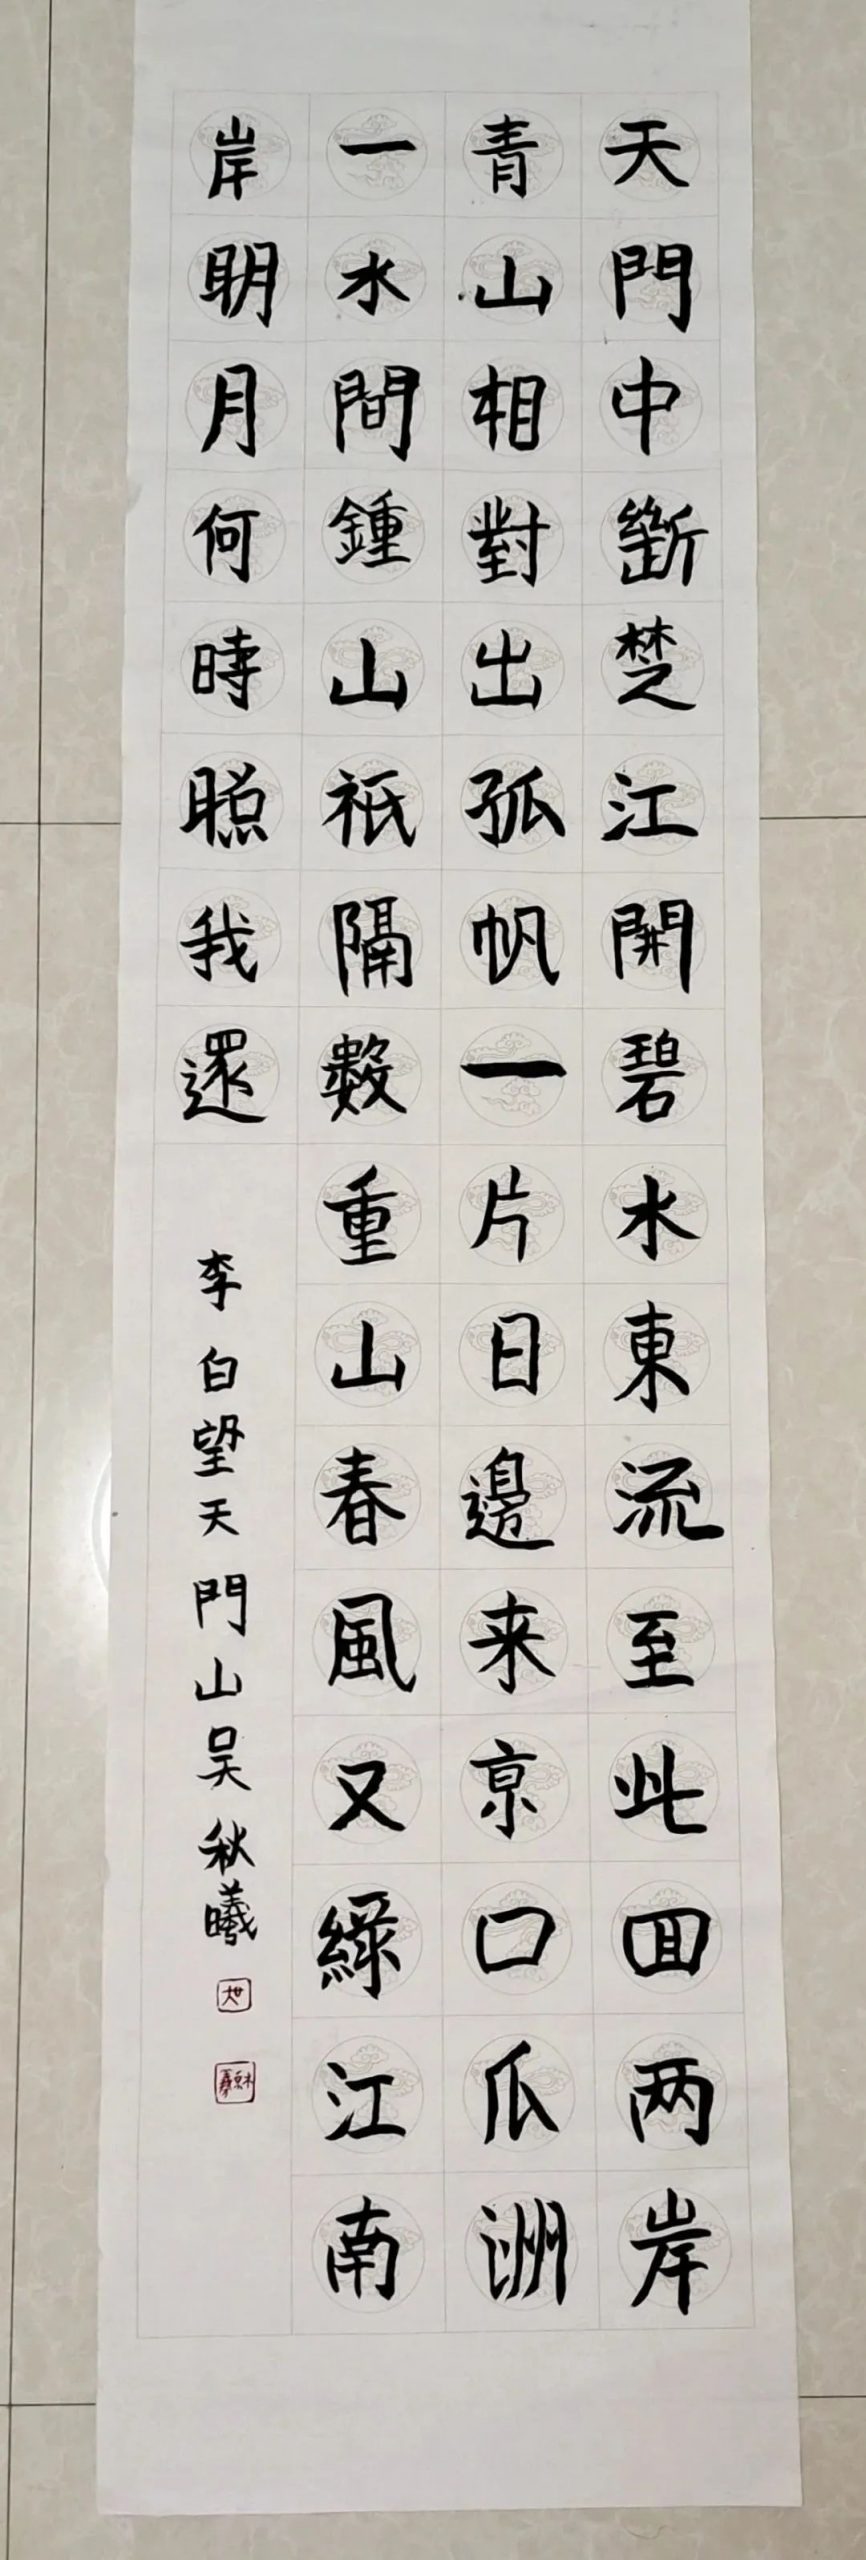 天門中斷楚江開碧水東流至此回两岸
青山相對出孤帆一片日邊来京口瓜洲
一水間鍾山祗隔數重山春風又綠江南
岸明月何時照我還
李白望天門山吴秋曦